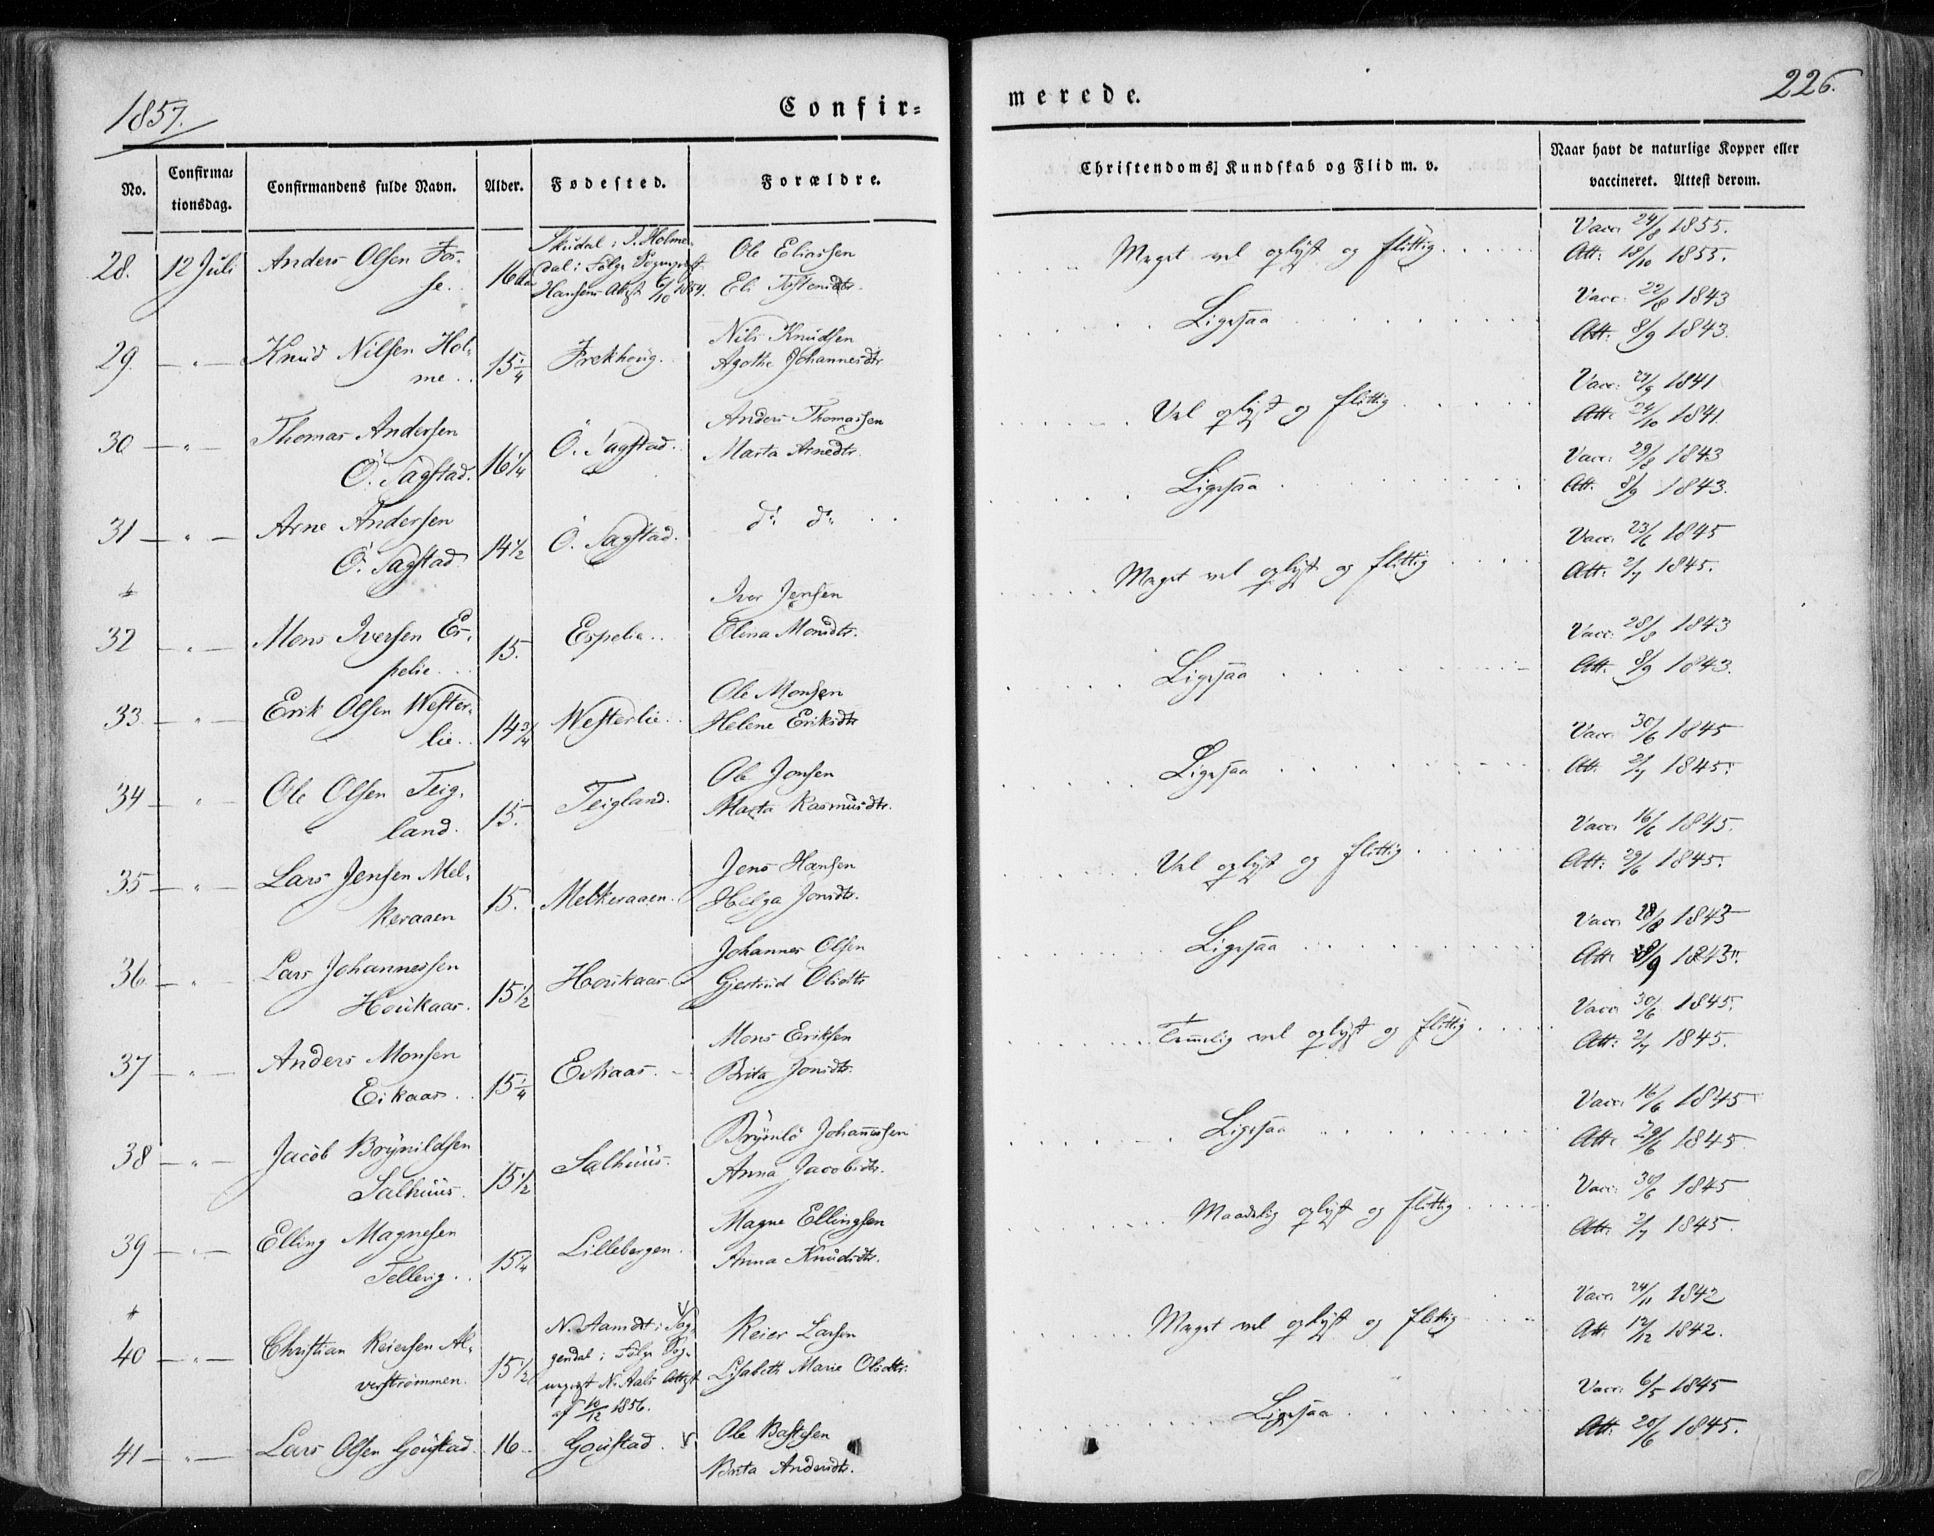 1857.
Confir=
merede.
226.
No.
Confirma=
tionsdag.
Confirmandens fulde Navn.
Alder.
Fødested.
Forældre.
Christendoms Kundskab og Flid m. v.
Naar havt de naturlige Kopper eller
vaccineret. Attest derom.
28. 12 Juli Anders Olsen Fos-
se.
16
Hansens Attest 6/10 1854.
Ole Eliassen
Eli
Meget vel oplyst og flittig
Vacc. 24/8 1855.
Att: 18/10 1855.
29. — " — Knud Nilsen Hol-
me. 15 1/4 Frekhoug.
Nils Knudsen
Agathe Johannesdtr
Ligesaa
Vacc. 22/8 1843
Att: 8/9 1843.
30 — " — Thomas Andersen
Ö. Sagstad. 16 1/4 Ö. Sagstad.
Anders Thomassen
Marta Arnedtr.
Vel oplyst og flittig
Vacc: 1841
Att: 24/10 1841.
31 — " — Arne Andersen
Ö. Sagstad 14 1/2 Ö. Sagstad.
do do
Ligesaa
Vacc: 29/8 1843
Att. 8/9 1843.
32 — " — Mons Iversen Es-
pelie. 15. Espelie.
Iver Jensen
Olina Monsdtr.
Meget vel oplyst og flittig
Vacc. 23/6 1845
Att: 2/7 1845.
33 — " — Erik Olsen Wester-
lie. 14 3/4 Westerlie.
Ole Monsen
Helene Eriksdtr
Ligesaa
Vacc. 28/8 1843
Att. 8/9 1843.
34 — " — Ole Olsen Teig-
land. 15. Teigland.
Ole Jonsen
Marta Rasmusdtr.
Ligesaa
Vacc. 30/6 1845
Att. 2/7 1845.
35 — " — Lars Jensen Mel-
keraaen 15. Melkeraaen.
Jens Hansen
Helga Jonsdtr.
Vel oplyst og flittig
Vacc. 16/6 1845.
Att: 29/6 1845.
36 — " — Lars Johannessen
Houkaas. 15 1/2 Houkaas.
Johannes Olsen
Gjertrud Olsdtr
Ligesaa
Vacc. 28/8 1843
Att. 8/9 1843.
37 — " — Anders Monsen
Eikaas. 15 1/4 Eikaas.
Mons Eriksen
Brita Jonsdtr.
Temmelig vel oplyst og flittig
Vacc. 30/6 1845.
Att: 2/7 1845.
38 — " — Jacob Brynildsen
Salhuus. 15 1/2 Salhuus.
Johannessen
Anna Jacobsdtr.
Ligesaa
Vacc. 16/6 1845
Att. 29/6 1845
39 — " — Elling Magnesen
Tellevig. 15 1/4 Lillebergen.
Magne Ellingsen
Anna Knudsdtr.
Maadelig oplyst og flittig
Vacc. 30/6 1845
Att. 2/7 1845.
40 — " — Christian Reiersen Al-
verstrømmen. 15 1/2
af 10/12 1856.
Reier Larsen
Lisabeth Marie Olsdtr.
Meget vel oplyst og flittig
Vacc. 24/11 1842
Att. 12/12 1842.
41 — " — Lars Olsen Goustad 16 Goustad.
Ole
Brita Andersdtr.
Ligesaa
Vacc. 6/5 1845
Att. 20/6 1845.